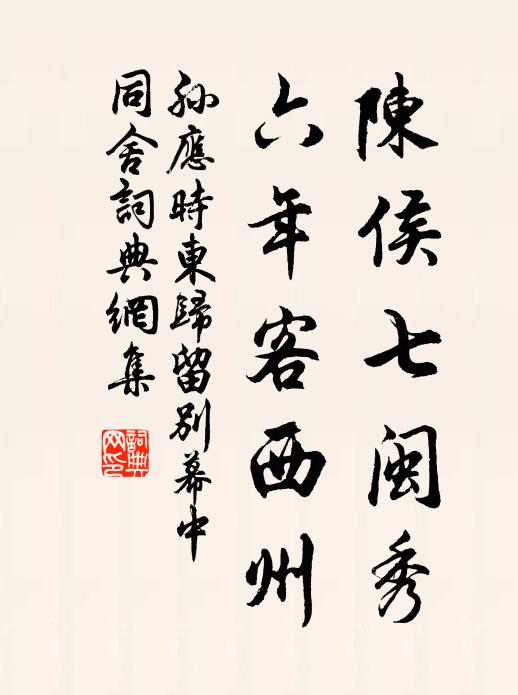 陳侯七閩秀
六年客西州
孫應時東歸留別幕中
同舍詞典網集
詞典
网印